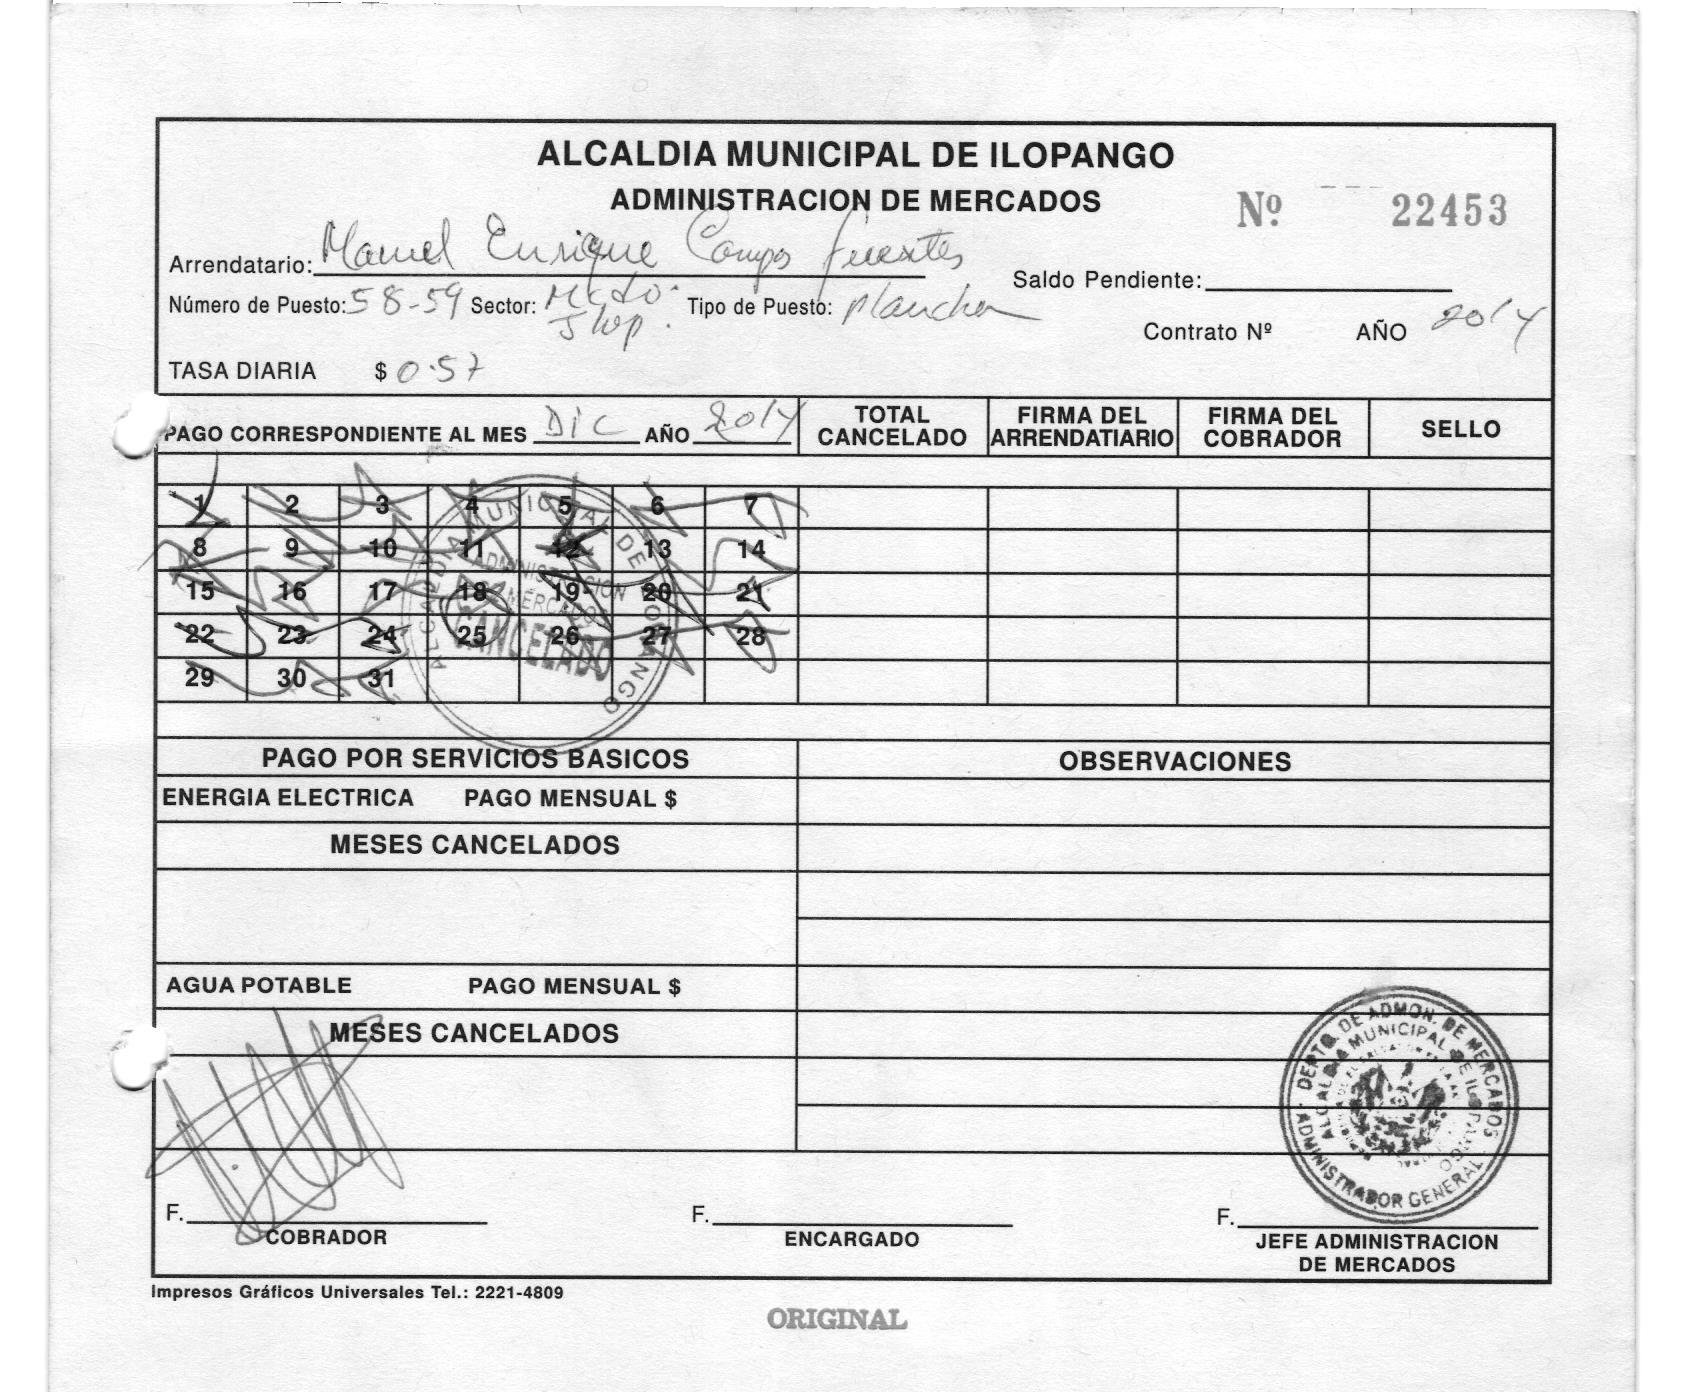 ALCALDIA MUNICIPAL DE ILOPANGO
ADMINISTRACION DE MERCADOS
Nº 22453
Arrendatario: Manuel Enrique Campos fuentes
Saldo Pendiente:
Número de Puesto: 58-59 Sector: Mcdo. Ilop. Tipo de Puesto: plancha
Contrato Nº AÑO 2014
TASA DIARIA $ 0.57
PAGO CORRESPONDIENTE AL MES DIC AÑO 2014
TOTAL CANCELADO
FIRMA DEL ARRENDATIARIO
FIRMA DEL COBRADOR
SELLO
1 2 3 4 5 6 7
8 9 10 11 12 13 14
15 16 17 18 19 20 21
22 23 24 25 26 27 28
29 30 31
ALCALDIA MUNICIPAL DE ILOPANGO
ADMINISTRACION
DE MERCADOS
CANCELADO
PAGO POR SERVICIOS BASICOS
OBSERVACIONES
ENERGIA ELECTRICA PAGO MENSUAL $
MESES CANCELADOS
AGUA POTABLE PAGO MENSUAL $
MESES CANCELADOS
DEPTO. DE ADMON. DE MERCADOS
ALCALDIA MUNICIPAL DE ILOPANGO
ADMINISTRADOR GENERAL
F.
COBRADOR
F.
ENCARGADO
F.
JEFE ADMINISTRACION
DE MERCADOS
Impresos Gráficos Universales Tel.: 2221-4809
ORIGINAL